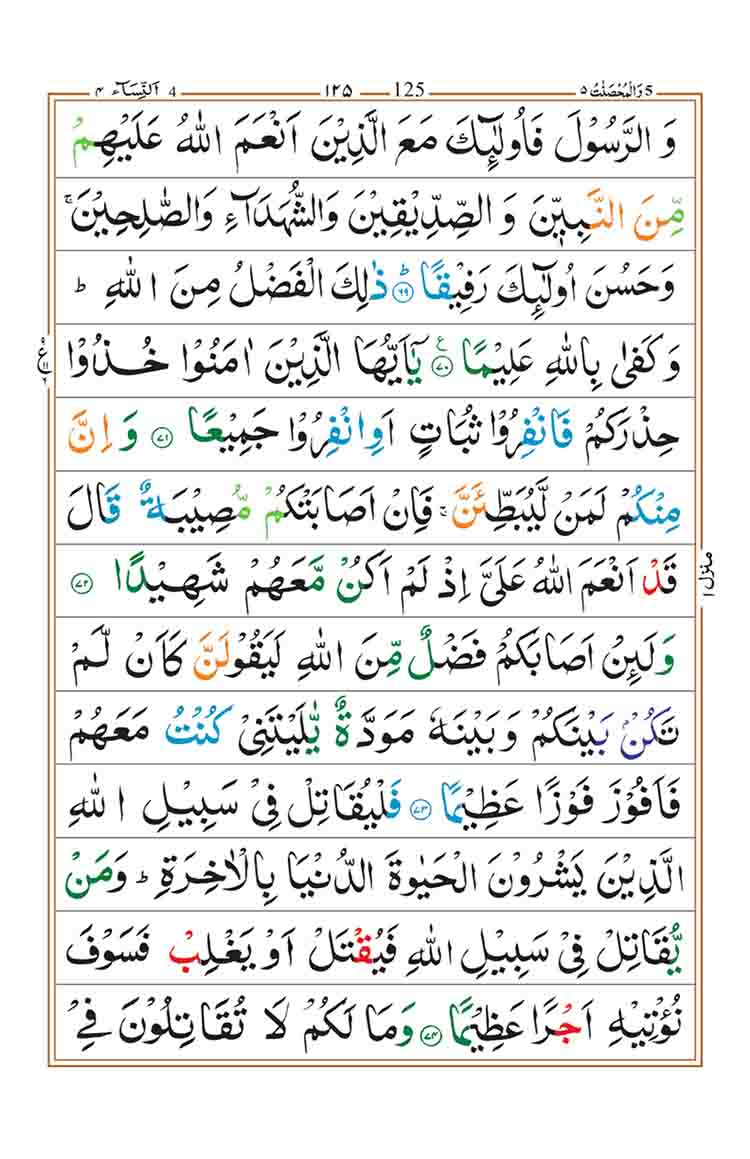 5 وَالْمُحْصَنٰتُ ٥ 125 ١٢٥ 4 اَلنِّسَآء ٤
وَ الرَّسُوْلَ فَاُولٰٓئِكَ مَعَ الَّذِيْنَ اَنْعَمَ اللّٰهُ عَلَيْهِمْ
مِّنَ النَّبِيّٖنَ وَ الصِّدِّيْقِيْنَ وَالشُّهَدَآءِ وَالصّٰلِحِيْنَ ۚ
وَحَسُنَ اُولٰٓئِكَ رَفِيْقًا ؕ ۝٦٩ ذٰلِكَ الْفَضْلُ مِنَ اللّٰهِ ؕ
وَكَفٰى بِاللّٰهِ عَلِيْمًا ۝٧٠ ع يٰۤاَيُّهَا الَّذِيْنَ اٰمَنُوْا خُذُوْا
حِذْرَكُمْ فَانْفِرُوْا ثُبَاتٍ اَوِانْفِرُوْا جَمِيْعًا ۝٧١ وَ اِنَّ
مِنْكُمْ لَمَنْ لَّيُبَطِّئَنَّ ۚ فَاِنْ اَصَابَتْكُمْ مُّصِيْبَةٌ قَالَ
قَدْ اَنْعَمَ اللّٰهُ عَلَيَّ اِذْ لَمْ اَكُنْ مَّعَهُمْ شَهِيْدًا ۝٧٢
وَلَئِنْ اَصَابَكُمْ فَضْلٌ مِّنَ اللّٰهِ لَيَقُوْلَنَّ كَاَنْ لَّمْ
تَكُنْۢ بَيْنَكُمْ وَبَيْنَهٗ مَوَدَّةٌ يّٰلَيْتَنِيْ كُنْتُ مَعَهُمْ
فَاَفُوْزَ فَوْزًا عَظِيْمًا ۝٧٣ فَلْيُقَاتِلْ فِيْ سَبِيْلِ اللّٰهِ
الَّذِيْنَ يَشْرُوْنَ الْحَيٰوةَ الدُّنْيَا بِالْاٰخِرَةِ ؕ وَمَنْ
يُّقَاتِلْ فِيْ سَبِيْلِ اللّٰهِ فَيُقْتَلْ اَوْ يَغْلِبْ فَسَوْفَ
نُؤْتِيْهِ اَجْرًا عَظِيْمًا ۝٧٤ وَمَا لَكُمْ لَا تُقَاتِلُوْنَ فِيْ
منزل ١